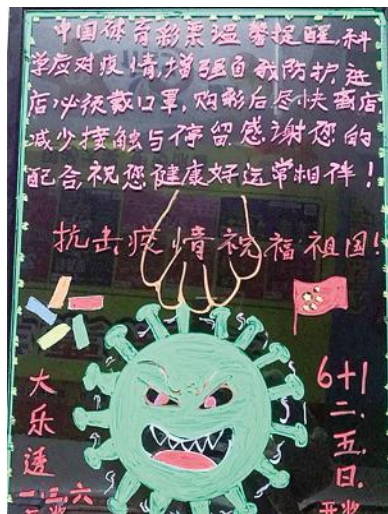 中国体育彩票温馨提醒,科
学应对疫情,增强自我防护,进
店必须戴口罩,购彩后尽快离店,
减少接触与停留.感谢您的
配合,祝您健康好运常相伴!
抗击疫情祝福祖国!
大乐透
一.三.六
开奖
6+1
二.五.日.
开奖